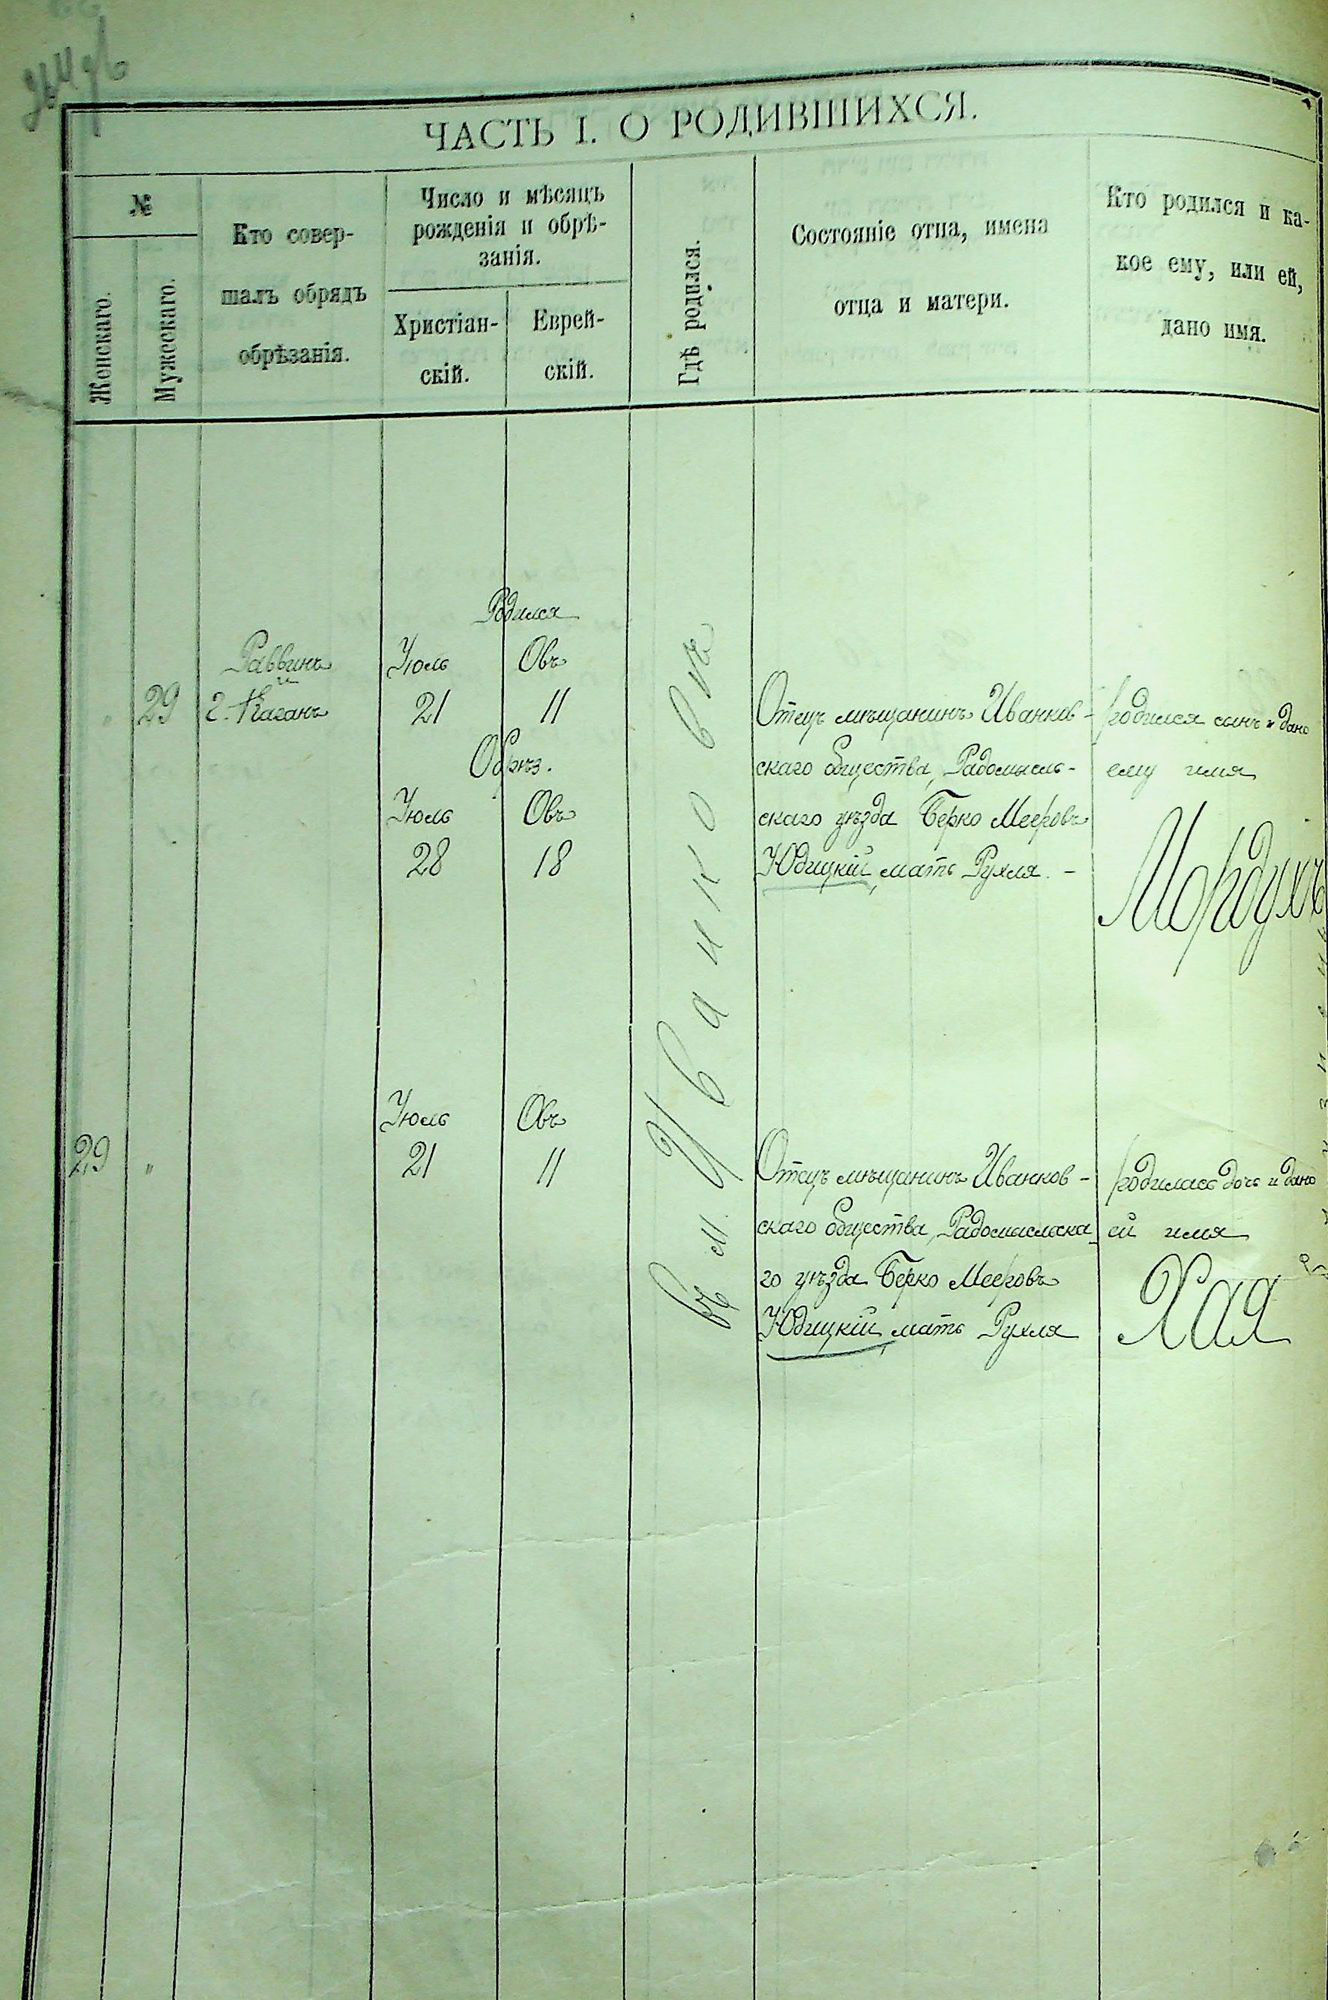 ЧАСТЬ I. О РОДИВШИХСЯ.
№
Женскаго.
Мужескаго.
Кто совер-
шалъ обрядъ
обрѣзанія.
Число и мѣсяцъ
рожденія и обрѣ-
занія.
Христіан-
скій.
Еврей-
скій.
Гдѣ родился.
Состояніе отца, имена
отца и матери.
Кто родился и ка-
кое ему, или ей,
дано имя.
Родился
Раввинъ Іюль Овъ
" 29 г. Каганъ 21 11
Обрѣз.
Іюль Овъ
28 18
Въ м. Иванковѣ
Отецъ мѣщанинъ Иванков-
скаго общества, Радомысль-
скаго уѣзда Берко Мееровъ
Юдицкій, мать Рухля. -
родился сынъ и дано
ему имя
Мордухъ
Іюль Овъ
29 " 21 11
Отецъ мѣщанинъ Иванков-
скаго общества, Радомысльска
го уѣзда Берко Мееровъ
Юдицкій, мать Рухля
родилась дочь и дано
ей имя
Хая